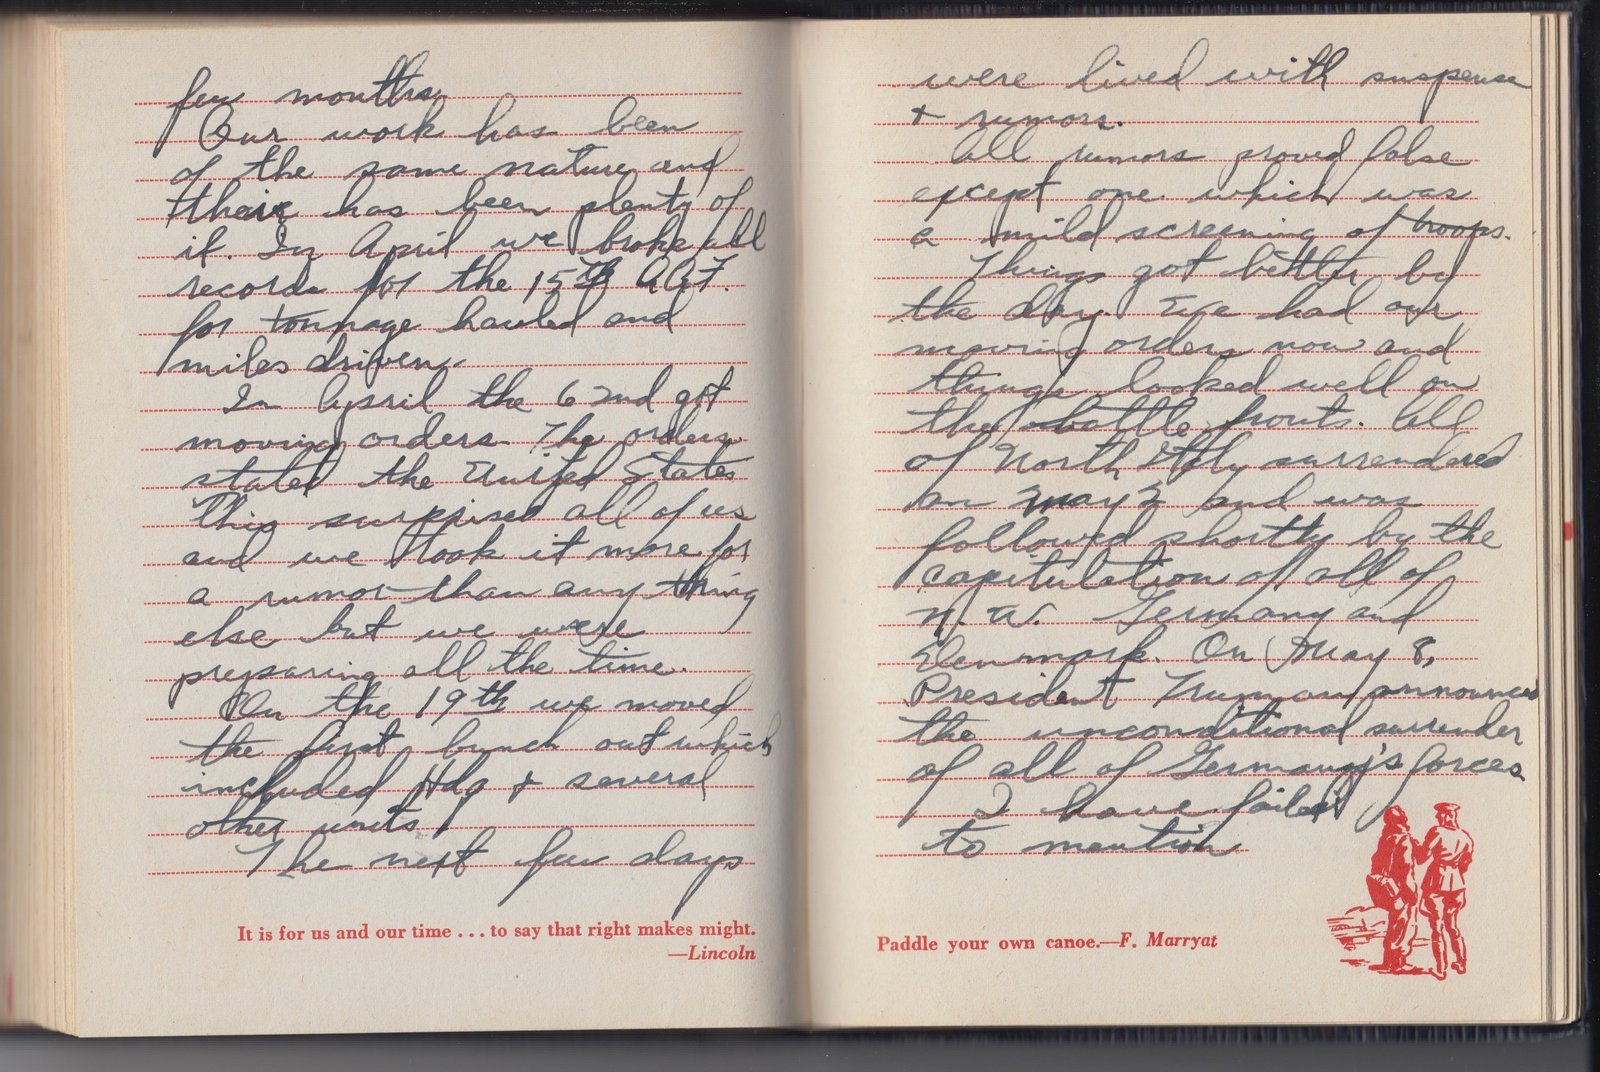 few months.
Our work has been
of the same nature and
their has been plenty of
it. In April we broke all
records for the 15th AAF.
for tonnage hauled and
miles driven.
In April the 62nd got
moving orders. The orders
stated the United States
This surprised all of us
and we took it more for
a rumor than any thing
else but we were
preparing all the time.
On the 19th we moved
the first bunch out which
included Hdq & several
other units
The next few days
It is for us and our time . . . to say that right makes might.
—Lincoln
were lived with suspense
& rumors.
All rumors proved false
except one which was
a mild screening of troops.
Things got better by
the day. We had our
moving orders now and
things looked well on
the battle fronts. All
of North Italy surrendered
on May 2 and was
followed shortly by the
capitulation of all of
N.W. Germany and
Denmark. On May 8,
President Truman announced
the unconditional surrender
of all of Germany's forces
I have failed
to mention
Paddle your own canoe.—F. Marryat